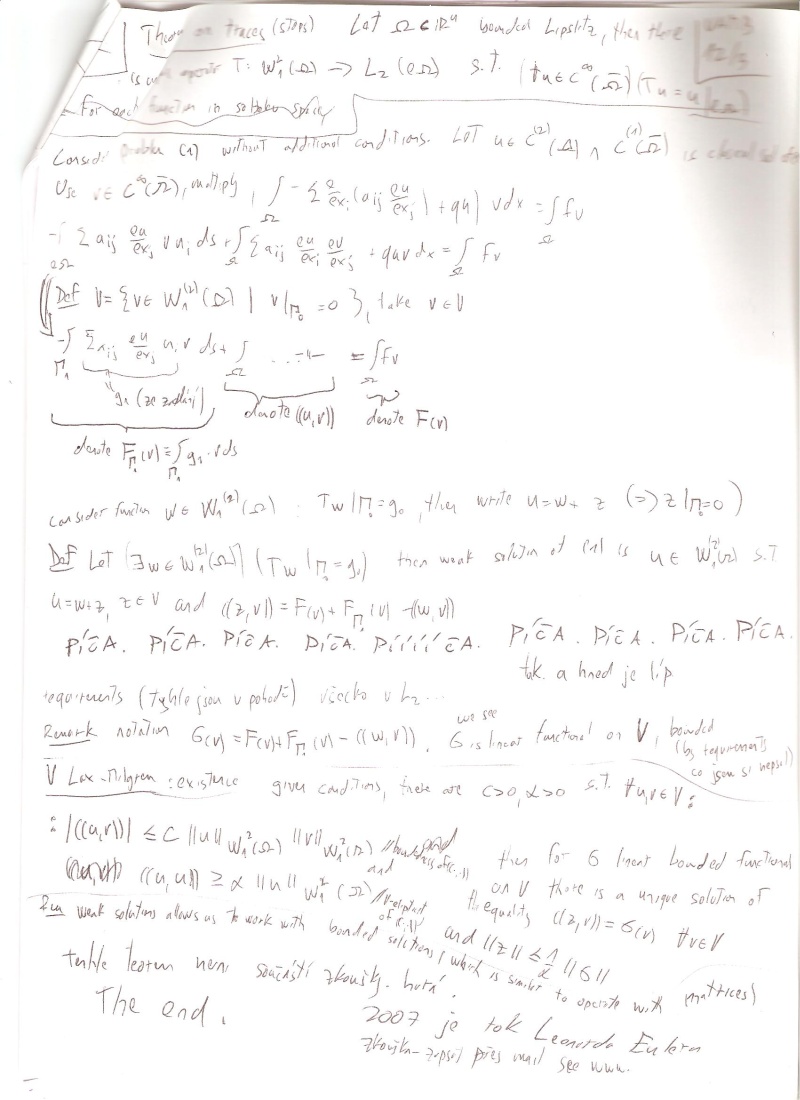 Theorem on traces (steps) Let Ω ⊂ ℝⁿ bounded Lipshitz, then there
is operator T: W₁²(Ω) → L₂(∂Ω) s.t. (∀u ∈ C^∞(Ω̄))(Tu = u|∂Ω)
For each function in sobolev space
Consider problem (1) without additional conditions. Let u ∈ C⁽²⁾(Ω) ∩ C⁽¹⁾(Ω̄) is classical sol
Use v ∈ C^∞(Ω̄), multiply, ∫_Ω (-Σ ∂/∂xᵢ (aᵢⱼ ∂u/∂xⱼ) + qu) v dx = ∫_Ω fv
-∫_∂Ω Σ aᵢⱼ ∂u/∂xⱼ v nᵢ ds + ∫_Ω Σ aᵢⱼ ∂u/∂xᵢ ∂v/∂xⱼ + quv dx = ∫_Ω fv
Def V = {v ∈ W₁⁽²⁾(Ω) | v|Γ₀ = 0}, take v ∈ V
-∫_Γ₁ Σ aᵢⱼ ∂u/∂xⱼ nᵢ v ds + ∫_Ω ... -"- = ∫_Ω fv
g₁ (ze zadání) denote ((u,v)) denote F(v)
denote F_Γ₁(v) = ∫_Γ₁ g₁ · v ds
consider function w ∈ W₁⁽²⁾(Ω) : Tw|Γ₀ = g₀, then write u = w + z (=> z|Γ₀ = 0)
Def Let (∃w ∈ W₁⁽²⁾(Ω)) (Tw|Γ₀ = g₀) then weak solution of (1) is u ∈ W₁⁽²⁾(Ω) s.t
u = w+z, z ∈ V and ((z,v)) = F(v) + F_Γ₁(v) - ((w,v))
PÍČA. PÍČA. PÍČA. PÍČA. PÍÍÍÍČA. PÍČA. PÍČA. PÍČA. PÍČA.
tak. a hned je líp
requirements (Tyhle jsou v pohodě) všecko v L₂...
Remark notation G(v) = F(v) + F_Γ₁(v) - ((w,v)). we see G is linear functional on V, bounded
(by requirements
co jsem si nepsal)
V Lax-Milgram: existence given conditions, there are C>0, α>0 s.t. ∀u,v ∈ V:
: |((u,v))| ≤ C ||u||W₁²(Ω) ||v||W₁²(Ω) // boundedness of ((.,.)) and
((u,u)) ≥ α ||u||²W₁²(Ω) // V-eliptict of ((.,.))
then for G linear bounded functional
on V there is a unique solution of
the equality ((z,v)) = G(v) ∀v∈V
and ||z|| ≤ 1/α ||G||
Rem weak solution allows us to work with bounded solutions, which is similar to operate with matrices)
tenhle teorem není součástí zkoušky. hurá.
The end.
2007 je rok Leonarda Eulera
zkouška - zapsat přes mail see www.